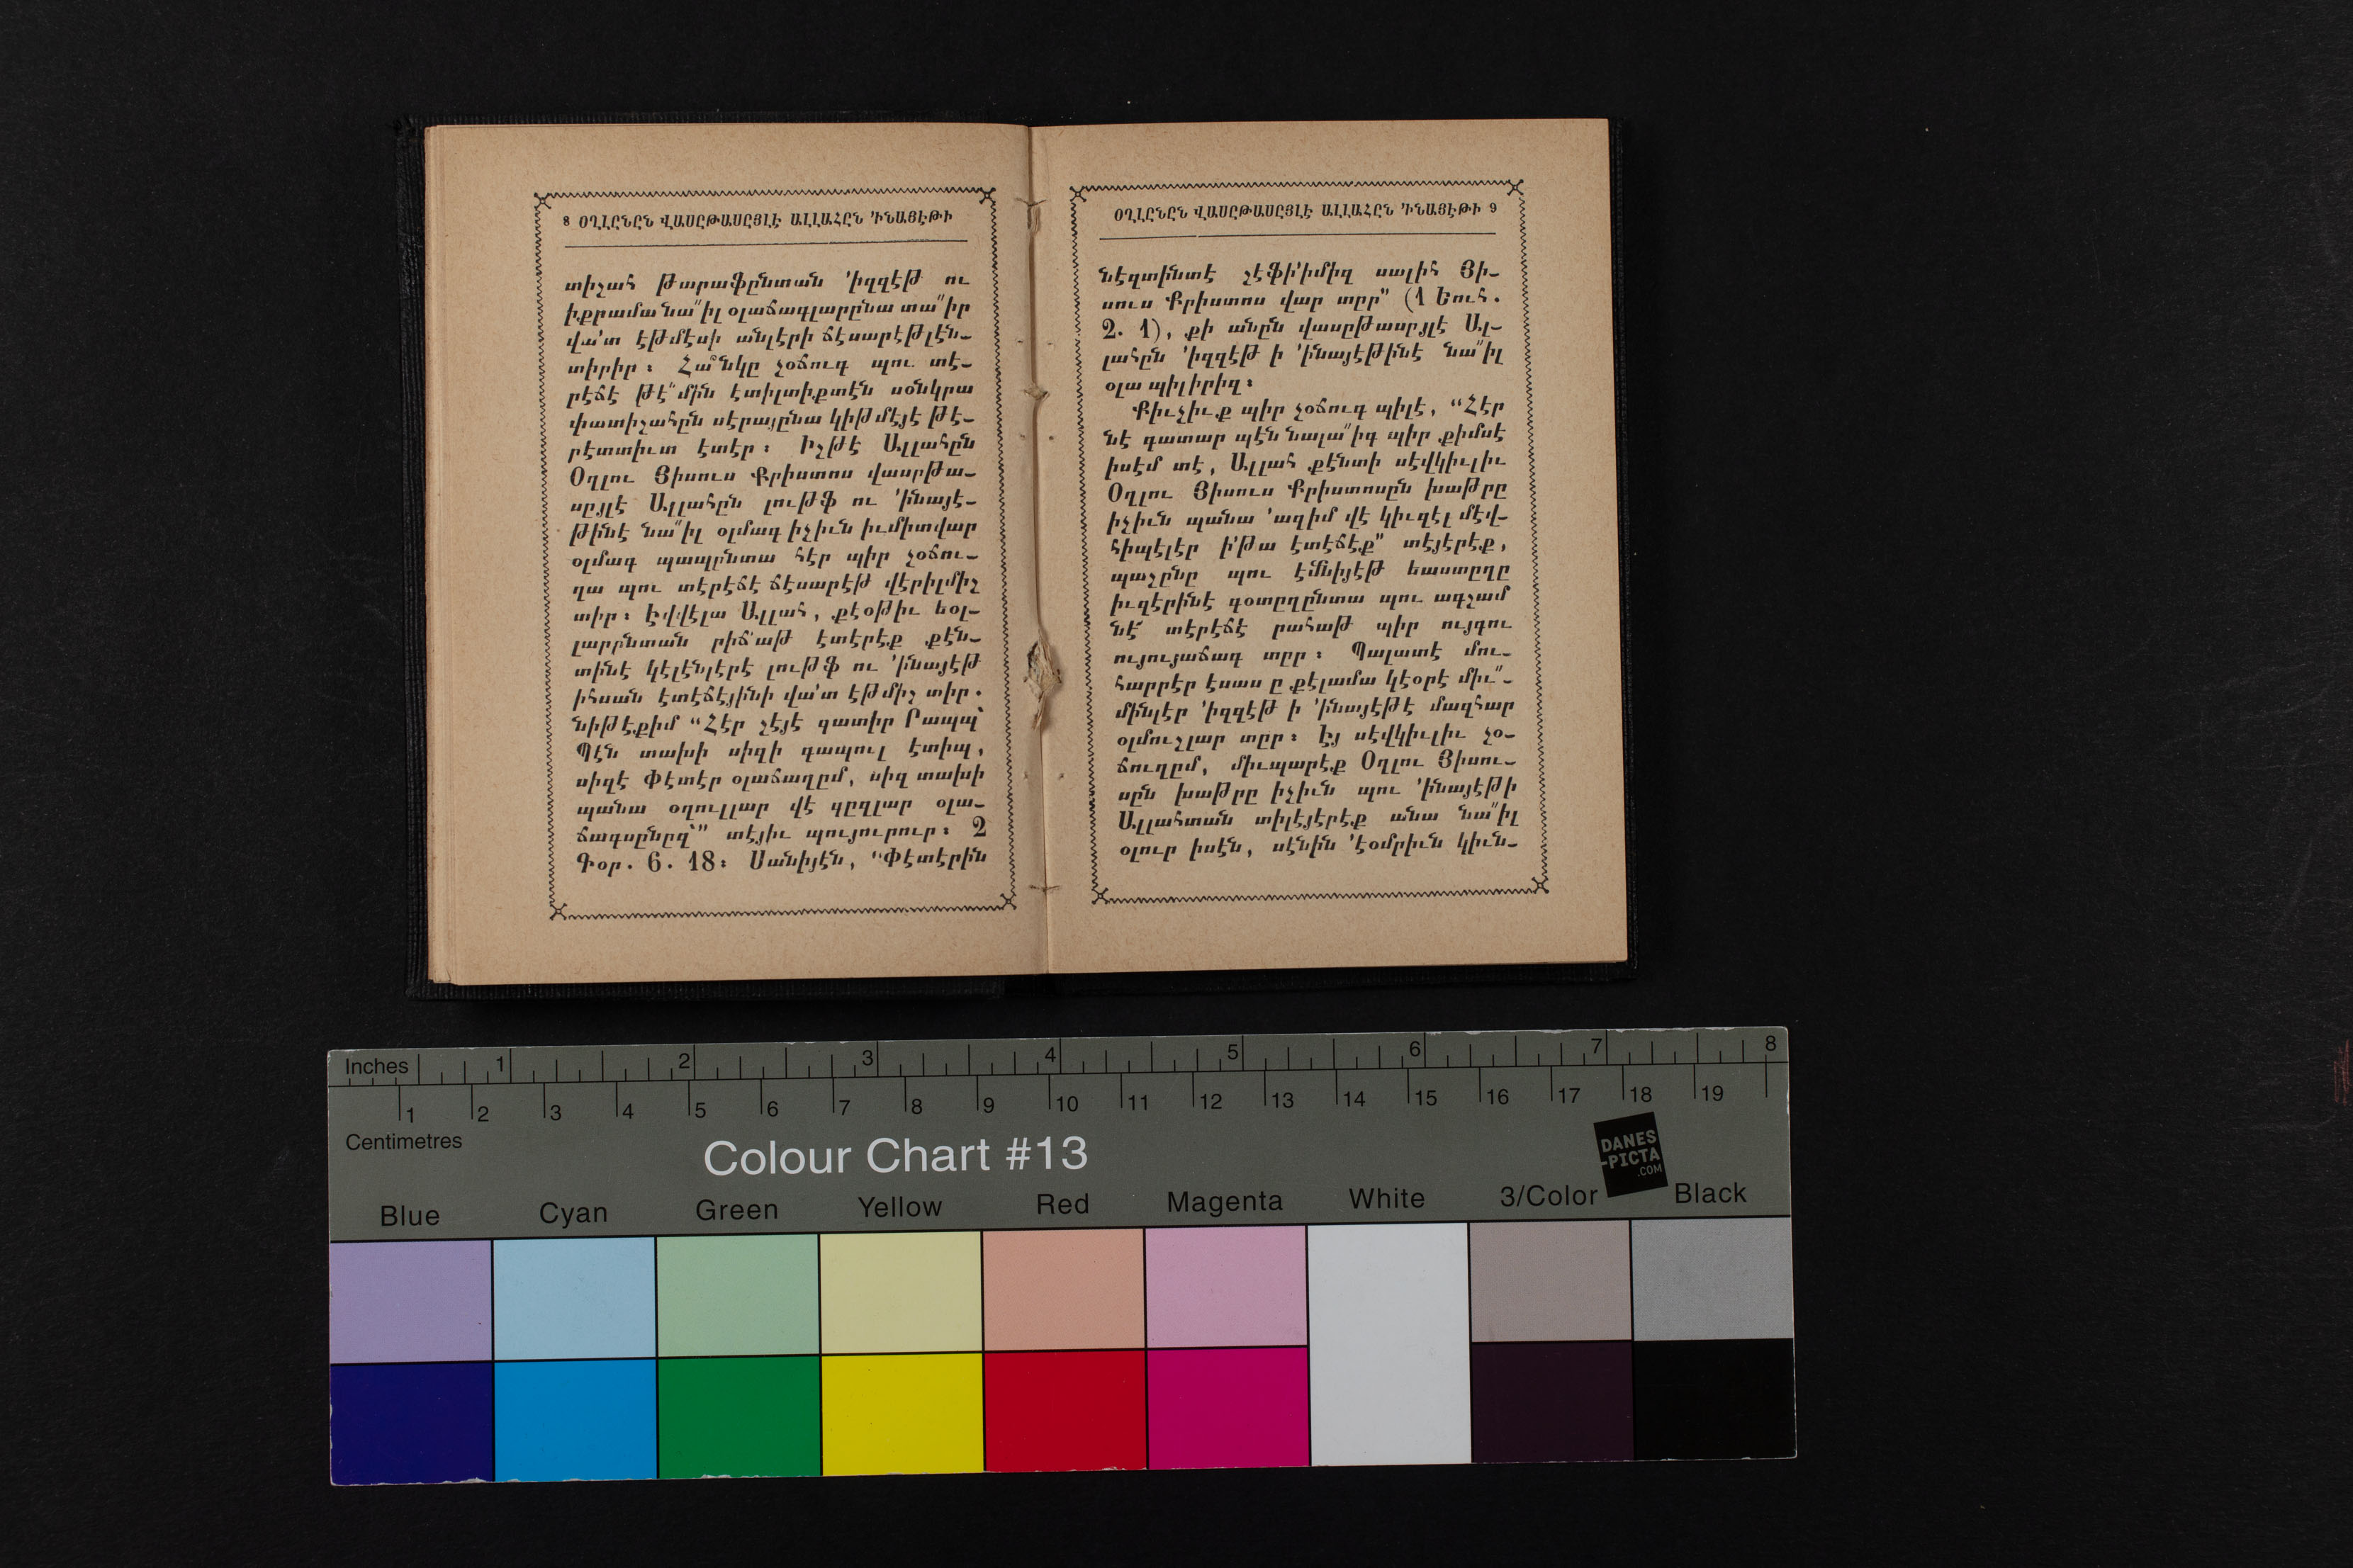 8 ՕՂԼԸՆԸՆ ՎԱՍԸԹԱՍԸՅԼԷ ԱԼԼԱՀԸՆ ՚ԻՆԱՅԷԹԻ
տիշահ թարաֆընտան ՚իզզէթ ու
իքրամա նա՞՛իլ օլաճագլարընա տա՞՛իր
վա՛տ էթմէսի անլէրի ճէսարէթլէն-
տիրիր։ Հա՞նկը չօճուգ պու տէ-
րէճէ թէ՞՛մին էտիլտիքտէն սօնկրա
փատիշահըն սէրայընա կիթմէյէ թէ-
րէտտիւտ էտէր։ Իշթէ Ալլահըն
Օղլու Յիսուս Քրիստոս վասըթա-
սըյլէ Ալլահըն լութֆ ու ՚ինայէ-
թինէ նա՞՛իլ օլմագ իչիւն իւմիտվար
օլմագ պապընտա հէր պիր չօճու-
ղա պու տէրէճէ ճէսարէթ վէրիլմիշ
տիր։ Էվվէլա Ալլահ, քէօթիւ եօլ-
լարընտան րիճ՚աթ էտէրէք քէն-
տինէ կէլէնլէրէ լութֆ ու ՚ինայէթ
իհսան էտէճէյինի վա՛տ էթմիշ տիր.
նիթէքիմ “Հէր շէյէ գատիր Րապպ՝
Պէն տախի սիզի գապուլ էտիպ,
սիզէ Փէտէր օլաճաղըմ, սիզ տախի
պանա օղուլլար վէ գըզլար օլա-
ճագսընըզ՝” տէյիւ պույուրուր։ 2
Գօր. 6. 18։ Սանիյէն, “Փէտէրին
ՕՂԼԸՆԸՆ ՎԱՍԸԹԱՍԸՅԼԷ ԱԼԼԱՀԸՆ ՚ԻՆԱՅԷԹԻ 9
նէզտինտէ շէֆի՛իմիզ սալիհ Յի-
սուս Քրիստոս վար տըր” (1 Եուհ.
2. 1), քի անըն վասըթասըյլէ Ալ-
լահըն ՚իզզէթ ի ՚ինայէթինէ նա՞՛իլ
օլա պիլիրիզ։
Քիւչիւք պիր չօճուգ պիլէ, “Հէր
նէ գատար պէն նալա՞՛իգ պիր քիմսէ
իսէմ տէ, Ալլահ քէնտի սէվկիւլիւ
Օղլու Յիսուս Քրիստոսըն խաթրը
իչիւն պանա ՚ազիմ վէ կիւզէլ մէվ-
հիպէլէր ի՛թա էտէճէք” տէյէրէք,
պաշընը պու էմնիյէթ եաստըղը
իւզէրինէ գօտըղընտա պու ագշամ
նէ՞ տէրէճէ րահաթ պիր ույգու
ույույաճագ տըր։ Պալատէ մու-
հարրէր էսաս ը քէլամա կէօրէ միւ՞՛-
մինլէր ՚իզզէթ ի ՚ինայէթէ մազհար
օլմուշլար տըր։ Էյ սէվկիւլիւ չօ-
ճուղըմ, միւպարէք Օղլու Յիսու-
սըն խաթրը իչիւն պու ՚ինայէթի
Ալլահտան տիլէյէրէք անա նա՞՛իլ
օլուր իսէն, սէնին ՚էօմրիւն կիւն-
Inches 1 2 3 4 5 6 7 8
1 2 3 4 5 6 7 8 9 10 11 12 13 14 15 16 17 18 19
Centimetres
Colour Chart #13
DANES
-PICTA
.COM
Blue Cyan Green Yellow Red Magenta White 3/Color Black